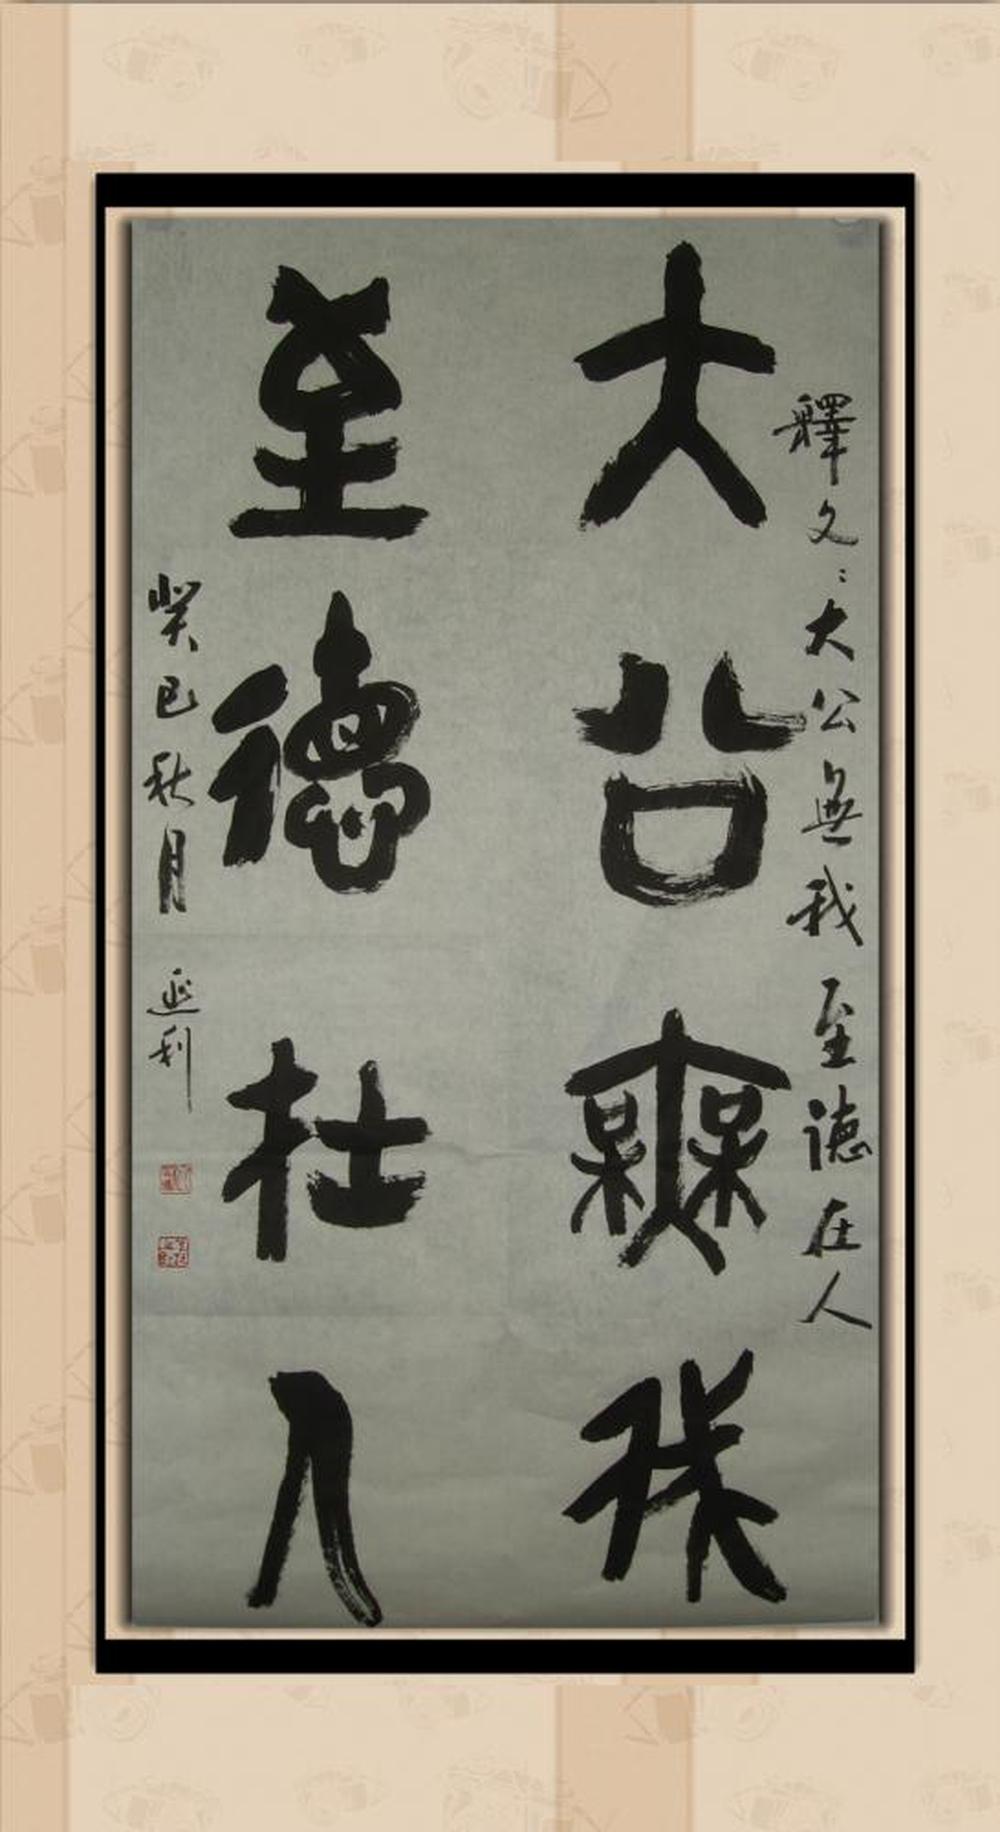 釋文：大公無我至德在人
大公無我
至德在人
癸巳秋月 延利